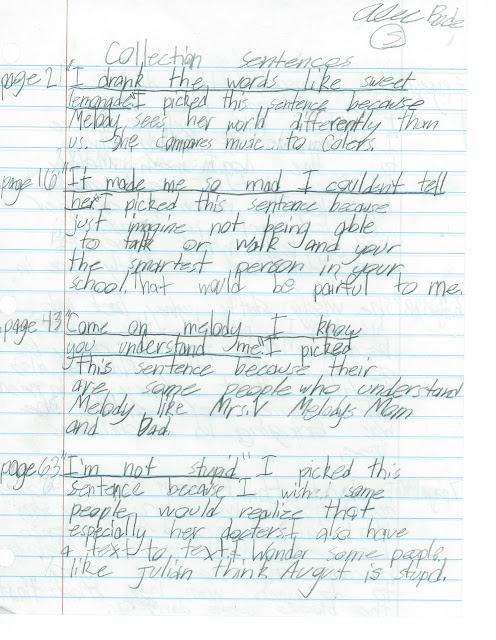 Alec Bode
3
Collection sentences
page 2 "I drank the words like sweet
lemonade" I picked this sentence because
Melody sees her world differently than
us. She compares music to Colers.
page 16 "It made me so mad I couldn't tell
her" I picked this sentence because
just imagine not being able
to talk or walk and your
the smartest person in your
school, that would be painful to me.
page 43 "Come on melody I know
you understand me" I picked
this sentence because their
are some people who understand
Melody like Mrs.V Melodys Mom
and Dad.
page 63 "I'm not stupid" I picked this
sentence because I wished some
people would realize that
especially her docters I also have
a text to text I wonder some people
like Julian think August is stupid.